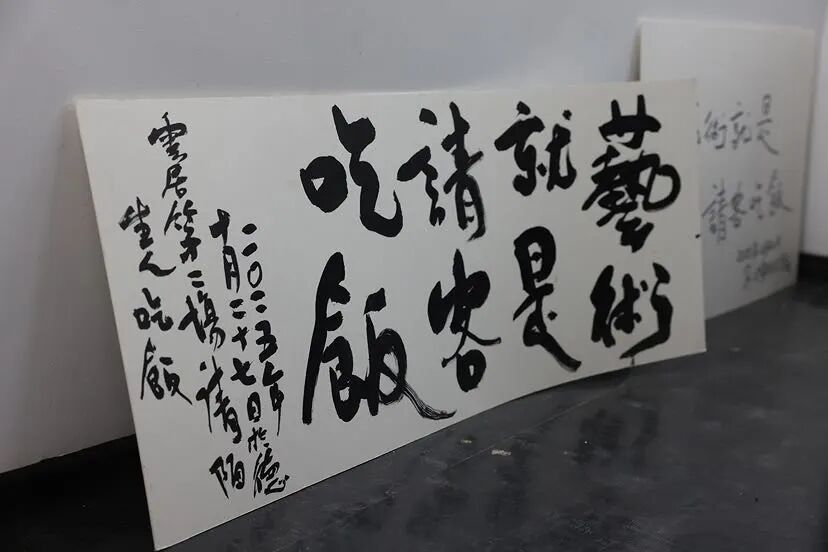 藝術
就是
請客
吃飯
二〇二五年
十月二十七日於德
雲居第二場請陌
生人吃飯
術就是
請客吃飯